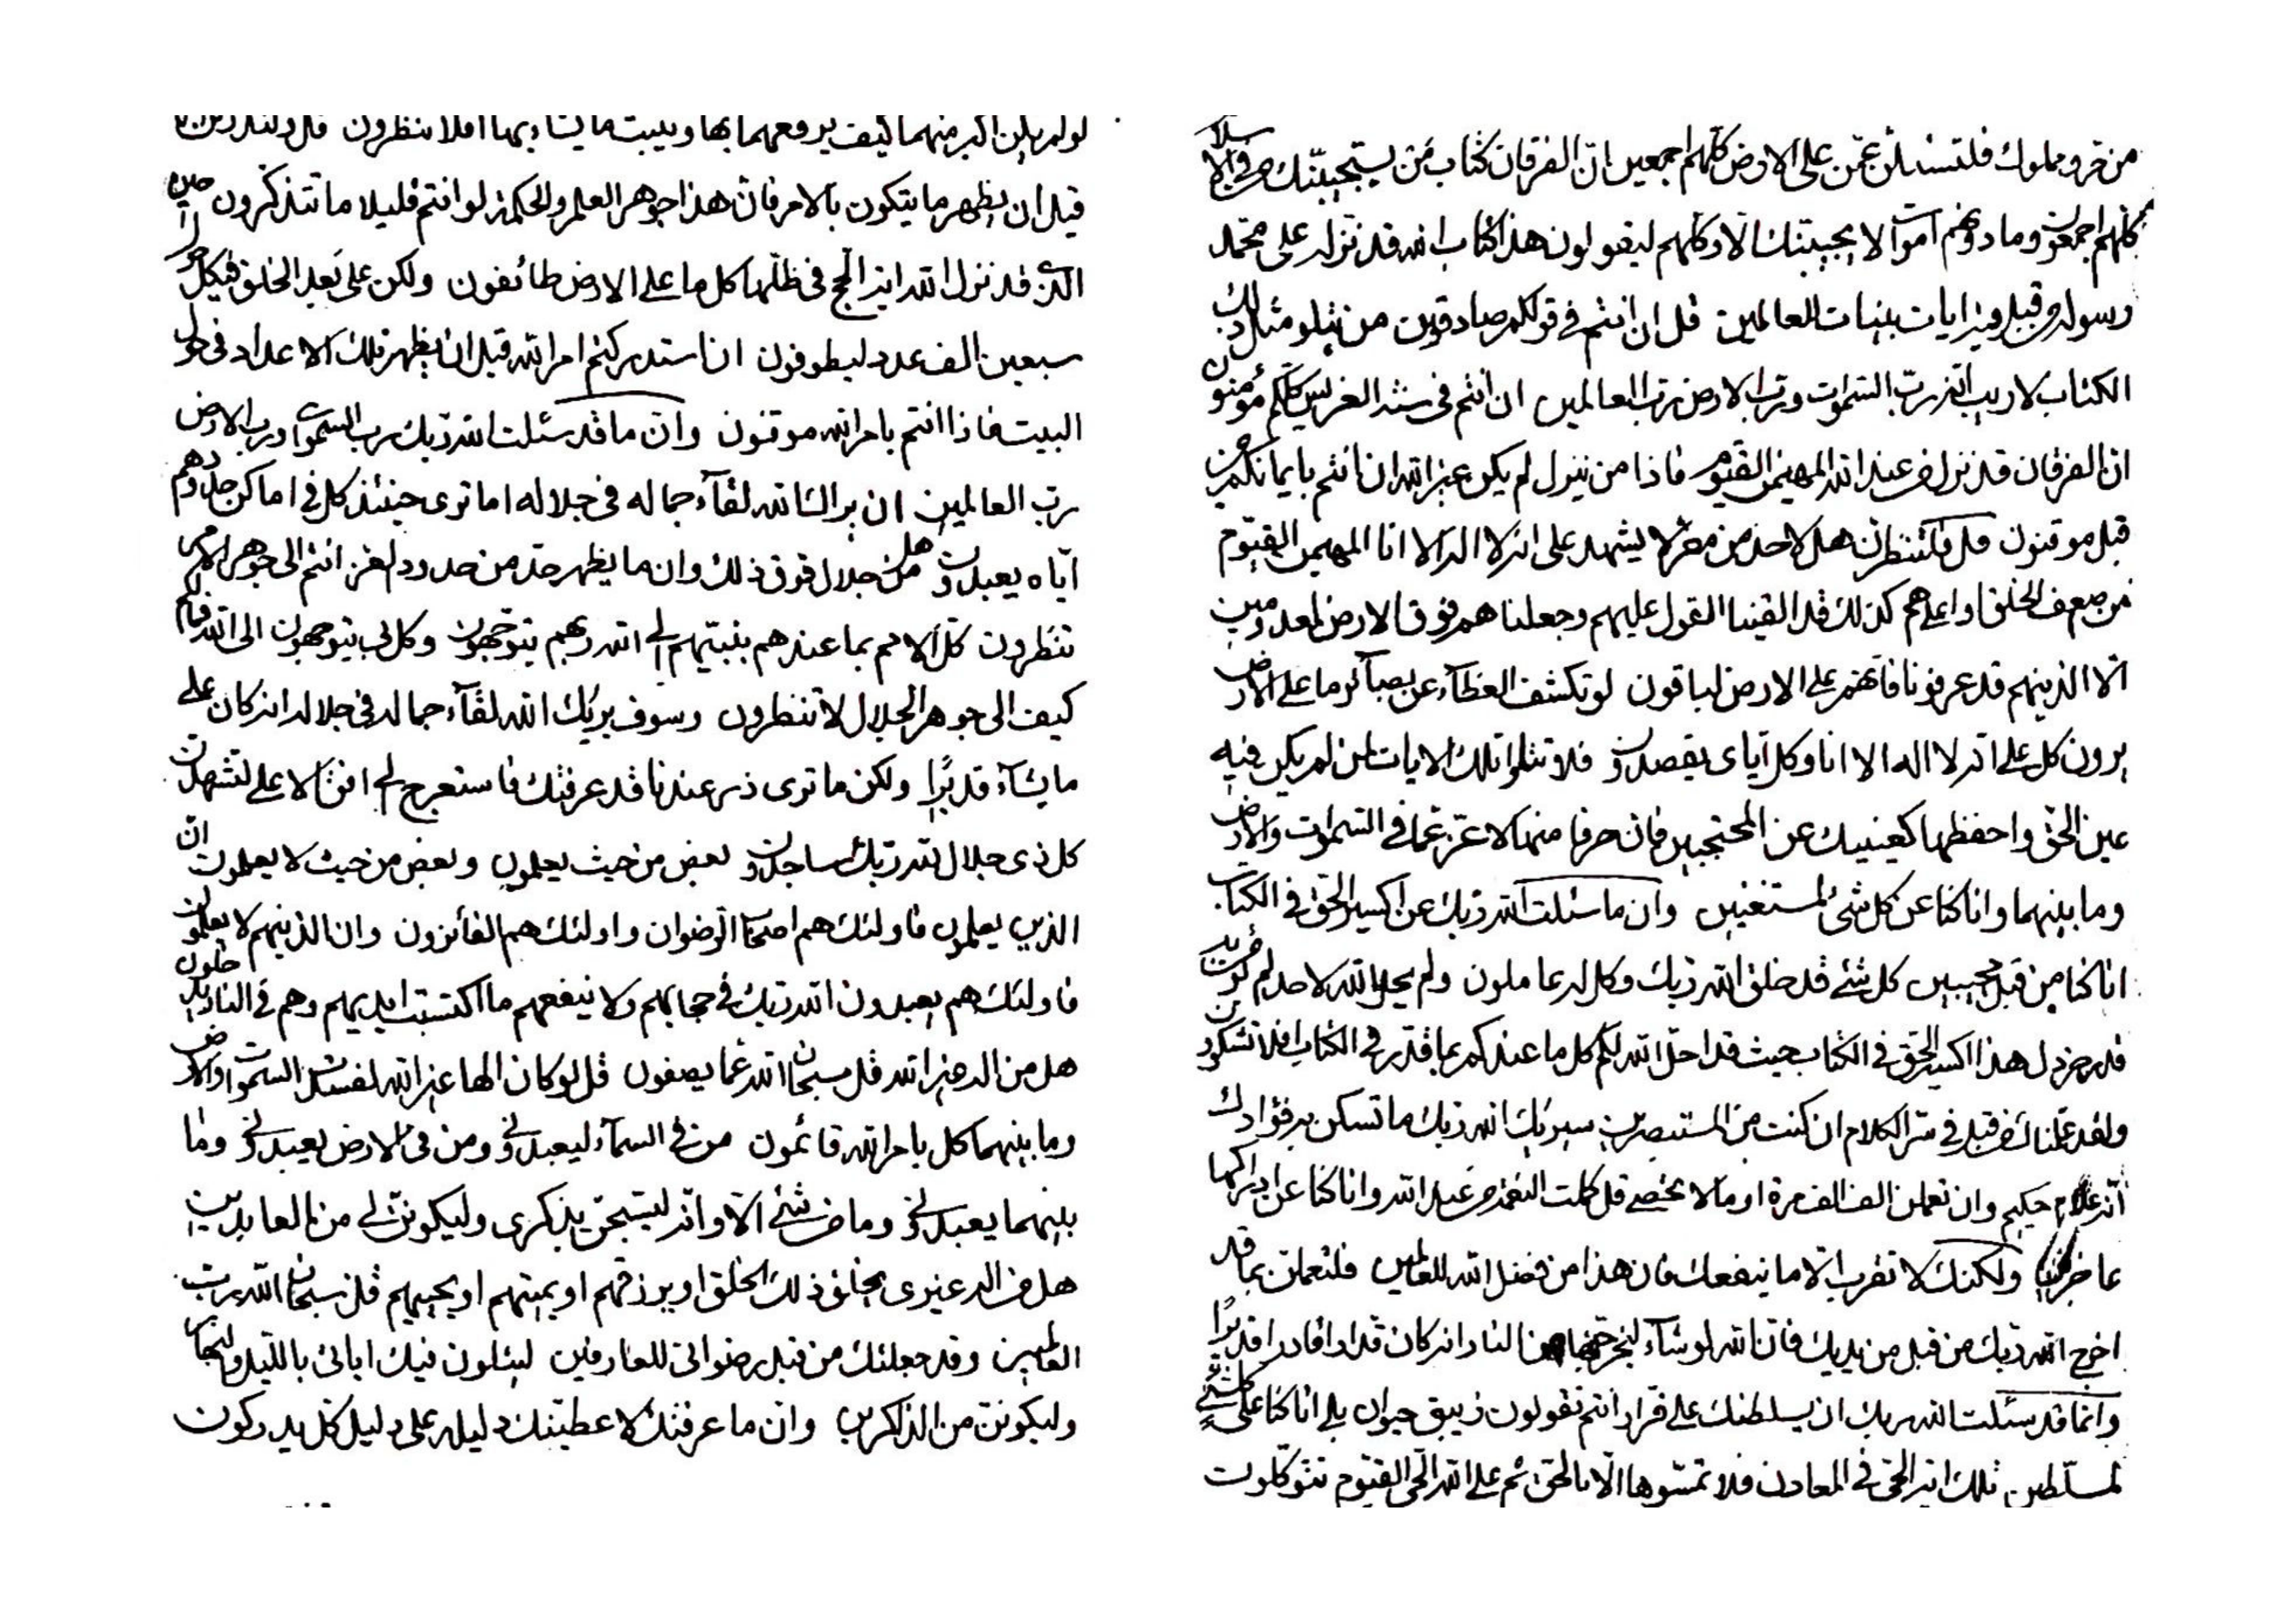 من حر ومملوك فلتسئلن عمن على الارض كلهم اجمعين ان الفرقان كتاب من يستجيبنك من في الاسلام
كلهم اجمعون وما دونهم اموات لا يجيبنك الا وكلهم ليقولون هذا كتاب الله قد نزله على محمد
رسوله من قبل فيه ايات بينات للعالمين قل ان انتم في قولكم صادقين من يتلو مثل ذلك
الكتاب لا ريب انه رب السموات ورب الارض رب العالمين ان انتم في بالله كلكم مؤمنون
ان الفرقان قد نزل من عند الله المهيمن القيوم فاذا من ينزل لم يكن غير الله ان انتم بايمانكم من
قبل موقنون قل فلتنظرن هل لاحد من مفر لا يشهد على انه لا اله الا انا المهيمن القيوم
من ضعف الخلق او اعلاهم كذلك قد القينا القول عليهم وجعلناهم فوق الارض لمعدومين
الا الذينهم قد عرفونا فانهم على الارض لباقون لو تكشف الغطاء عن بصائر ما على الارض
يرون كل على انه لا اله الا انا وكل اياى يقصدون فلا تتلوا تلك الايات لمن لم يكن فيه
عين الحق واحفظها كعينيك عن المحتجبين فان حرفا منها لاعز عما في السموات والارض
وما بينهما وانا كنا عن كل شئ لمستغنين وان ما سئلت الله ربك عن اكسير الحق في الكتاب
انا كنا من قبل مجيبين كل شئ قد خلق الله ربك وكل له عاملون ولم يحل الله لاحد لم
قدر خردل هذا اكسير الحق في الكتاب حيث قد احل الله لكم كل ما عندكم بما قدر في الكتاب افلا تشكرون
ولقد علمناك من قبل في سر الكلام ان كنت من المستبصرين سيريك الله ربك ما تسكن به فؤادك
انه علام حكيم وان تعلمن الف الف مرة او ما لا يحصى قل كملت النعمة من عند الله وانا كنا عن ادراكها
عاجزين ولكنك لا تقرب الا ما ينفعك فان هذا من فضل الله للعالمين فلتعلمن بما قد
اخرج الله ربك من قبل من يديك فان الله لو شاء ليخرجنها من النار انه كان قدارا قادرا قديرا
وانما قد سئلت الله ربك ان يسلطنك على فرار انتم تقولون زيبق حيوان بلى انا كنا على كل شئ
لمسلطين تلك انه الحق في المعادن فلا تمسوها الا بالحق ثم على الله الحي القيوم تتوكلون
لو لم يكن اكبر منهما كيف يرفعهما بها ويثبت ما يشاء بهما افلا تنظرون
قبل ان يظهر ما يتكون بالامر فان هذا جوهر العلم والحكمة لو انتم قليلا ما تتذكرون
الذى قد نزل الله اية الحج في ظلها كل ما على الارض طائفون ولكن على بعد الخلق فليكمل
سبعين الف عدد ليطوفون انا ستدركنم امر الله قبل ان يظهر تلك الاعداد في حول
البيت فاذا انتم بامر الله موقنون وان ما قد سئلت الله ربك رب السموات ورب الارض
رب العالمين ان يرانا الله لقاء جماله في جلاله اما ترى حينئذ كل في اماكن حدودهم
اياه يعبدون هل من جلال فوق ذلك وان ما يظهر حد من حدود لغز انتم الى جوهر الامر
تنظرون كل الامم بما عندهم بنبيهم الى الله ربهم يتوجهون وكل بى يتوجهون الى الله
كيف الى جوهر الجلال لا تنظرون وسوف يريك الله لقاء جماله في جلاله انه كان على
ما يشاء قديرا ولكن ما ترى ذر عندنا قد عرفتك فاستعرج الى افق الاعلى لتشهدن
كل ذى جلال لله ربك ساجدون بعض من حيث يعلمون وبعض من حيث لا يعلمون ان
الذين يعلمون فاولئك هم اصحاب الرضوان واولئك هم الفائزون وان الذينهم لا يعلمون
فاولئك هم يعبدون الله ربك في حجابهم ولا ينفعهم ما اكتسبت ايديهم وهم في النار يدخلون
هل من اله غير الله قل سبحان الله عما يصفون قل لو كان الها غير الله لفسدت السموات والارض
وما بينهما كل بامر الله قائمون من في السماء ليعبدونى ومن في الارض يعبدونى وما
بينهما يعبدونى وما من شئ الا وانه ليستحق بذكرى وليكونن لى من العابدين
هل من اله غيرى يخلق ذلك الخلق او يرزقهم او يميتهم او يحييهم قل سبحان الله رب
العالمين وقد جعلنك من قبل رضوانى للعارفين ليتلون فيك اياتى بالليل والنهار
وليكونن من الذاكرين وان ما عرفتك لاعطيتك دليله على دليل كل يدركون